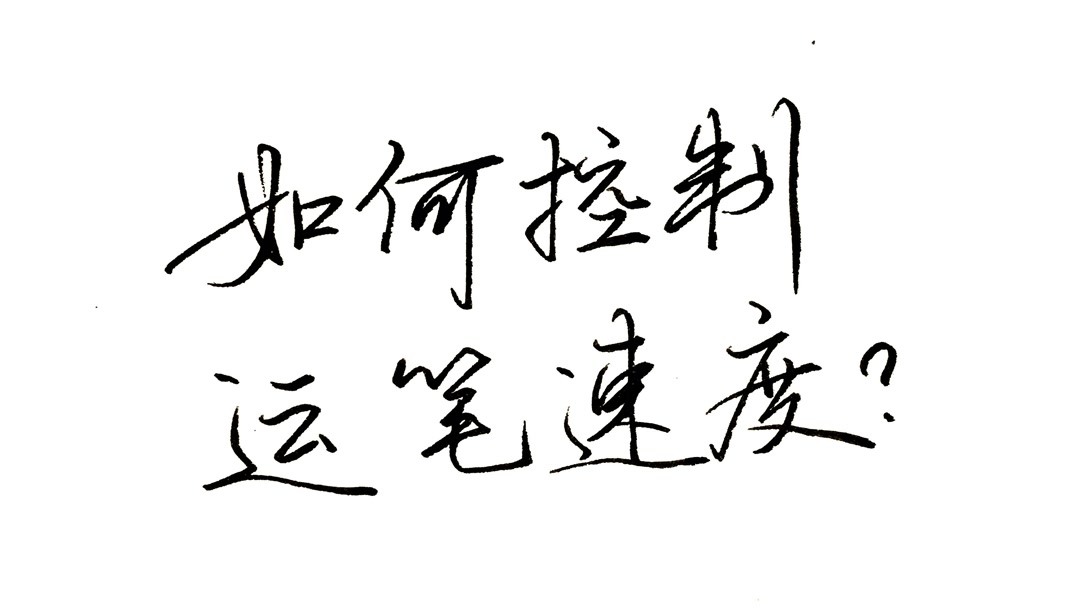 如何控制
运笔速度?